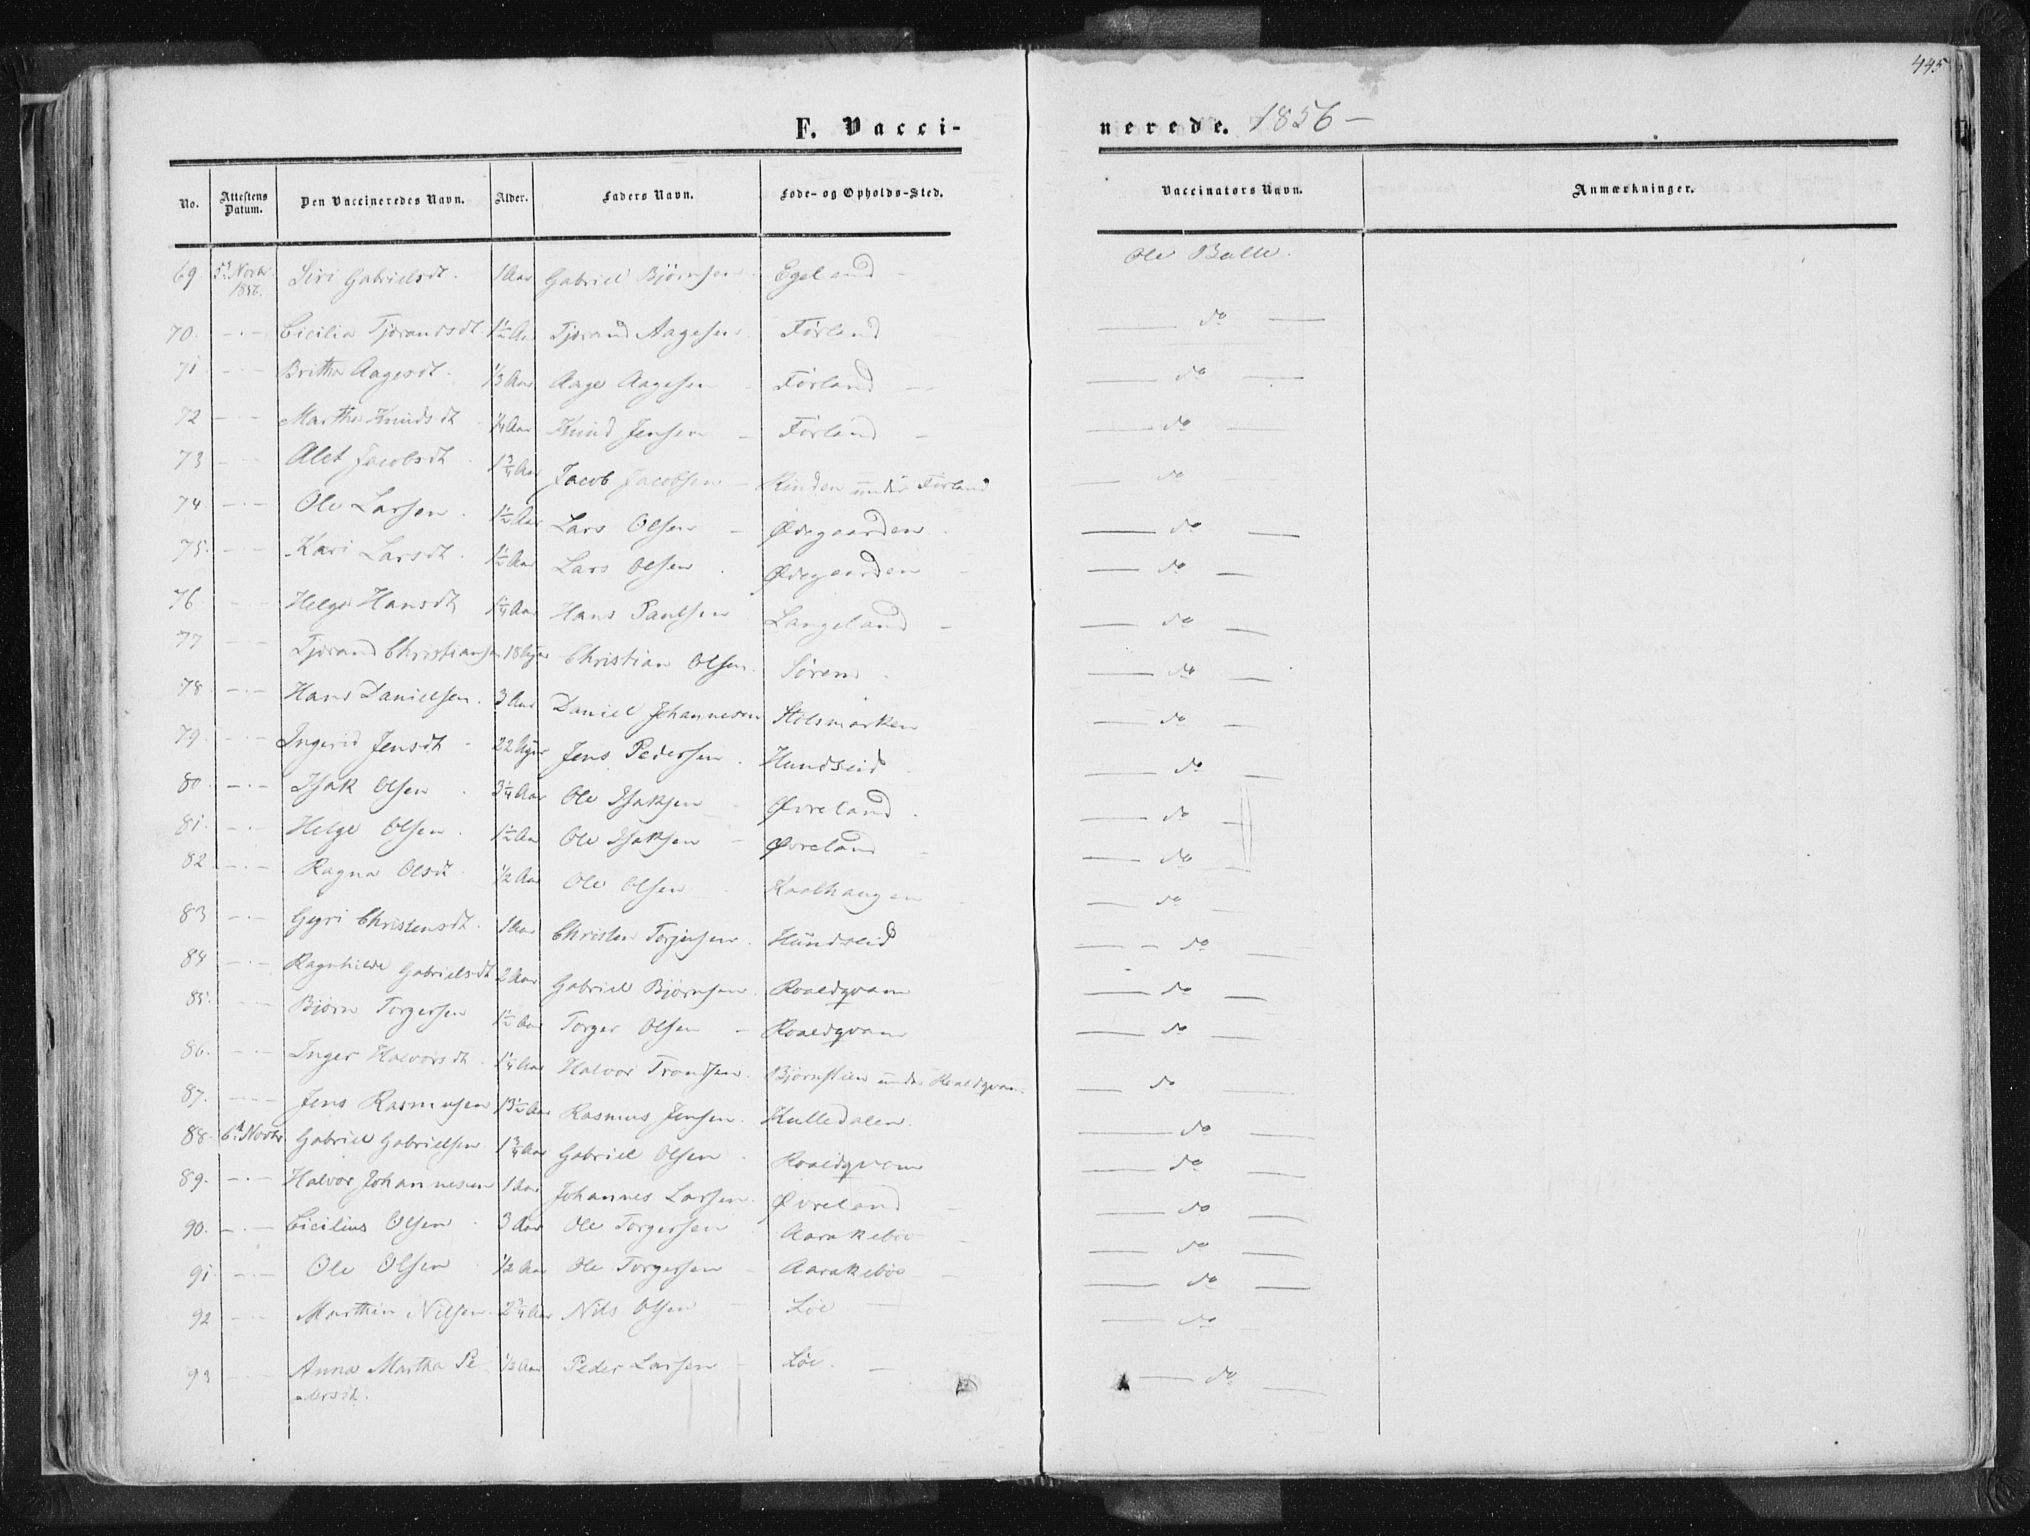 445
F. Vacci- nerede. 1856 —
No. Attestens Datum. Den Vaccineredes Navn. Alder. Faders Navn. Føde- og Opholds-Sted. Vaccinators Navn. Anmærkninger.
69. 5t Novbr 1856. Siri Gabrielsdt. 1 Aar Gabriel Bjørnsen Egeland — Ole Balle.
70. —.— Cicilia Tjørandsdt. 1½ Aar Tjørand Aagesen Førland — do —
71. —.— Britha Aagesdt. ⅓ Aar Aage Aagesen — Førland — — do —
72 —.— Martha Knudsdt ¼ Aar Knud Jensen — Førland — — do —
73 —.— Alet Jacobsdt 1¾ Aar Jacob Jacobsen — Rinden under Førland — do —
74 —.— Ole Larsen. 1½ Aar Lars Olsen — Ødegaarden. — do —
75. —.— Kari Larsdt. 1½ Aar Lars Olsen. Ødegaarden — — do —
76 —.— Helge Hansdt 1¼ Aar Hans Paulsen Langeland — — do —
77 —.— Tjørand Christiansen 18 Uger Christian Olsen. Søren — do —
78. —.— Hans Danielsen. 3 Aar Daniel Johannesen Stolsmarken — do —
79. —.— Ingerid Jensdt — 22 Uger Jens Pedersen. Hundseid. — do —
80. —.— Isak Olsen. 3¼ Aar Ole Isaksen — Øvreland. — do —
81. —.— Helge Olsen. 1½ Aar Ole Isaksen — Øvreland — — do —
82 —.— Ragna Olsdt. ½ Aar Ole Olsen — Kaalhaugen — do —
83 —.— Gyri Christensdt. 1 Aar Christen Torjusen. Hundseid — — do
84 —.— Ragnhilde Gabrielsdt 2 Aar Gabriel Bjørnsen. Roaldqvam — do —
85. —.— Bjørn Torgersen 1½ Aar Torger Olsen — Roaldqvam — do —
86. —.— Inger Halvorsdt. 1¼ Aar Halvor Trondsen. Bjørnstien under Roaldqvam. — do —
87. —.— Jens Rasmusen 13½ Aar Rasmus Jensen. Hulledalen. — do —
88. 6t Novbr. Gabriel Gabrielsen 1¾ Aar Gabriel Olsen. Roaldqvam — do —
89. —.— Halvor Johannesen 1 Aar Johannes Larsen. Øvreland — — do —
90. —.— Cicilius Olsen. 3 Aar Ole Torgersen Aarakebø — — do —
91. —.— Ole Olsen ½ Aar Ole Torgersen — Aarakebø — — do —
92 —.— Marthin Nilsen. 2¾ Aar Nils Olsen — Løe — — do —
93 —.— Anna Martha Pe- ½ Aar Peder Larsen — Løe. — — do —
dersdt.